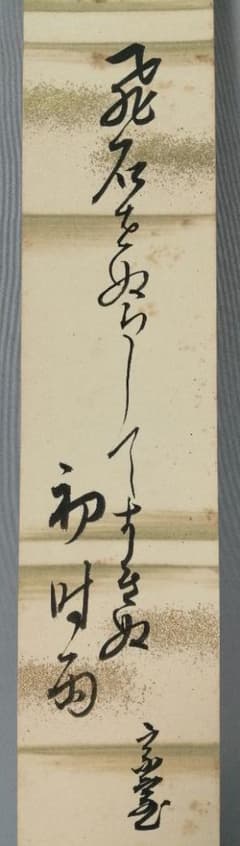 飛石をぬらしてすきぬ
初時雨